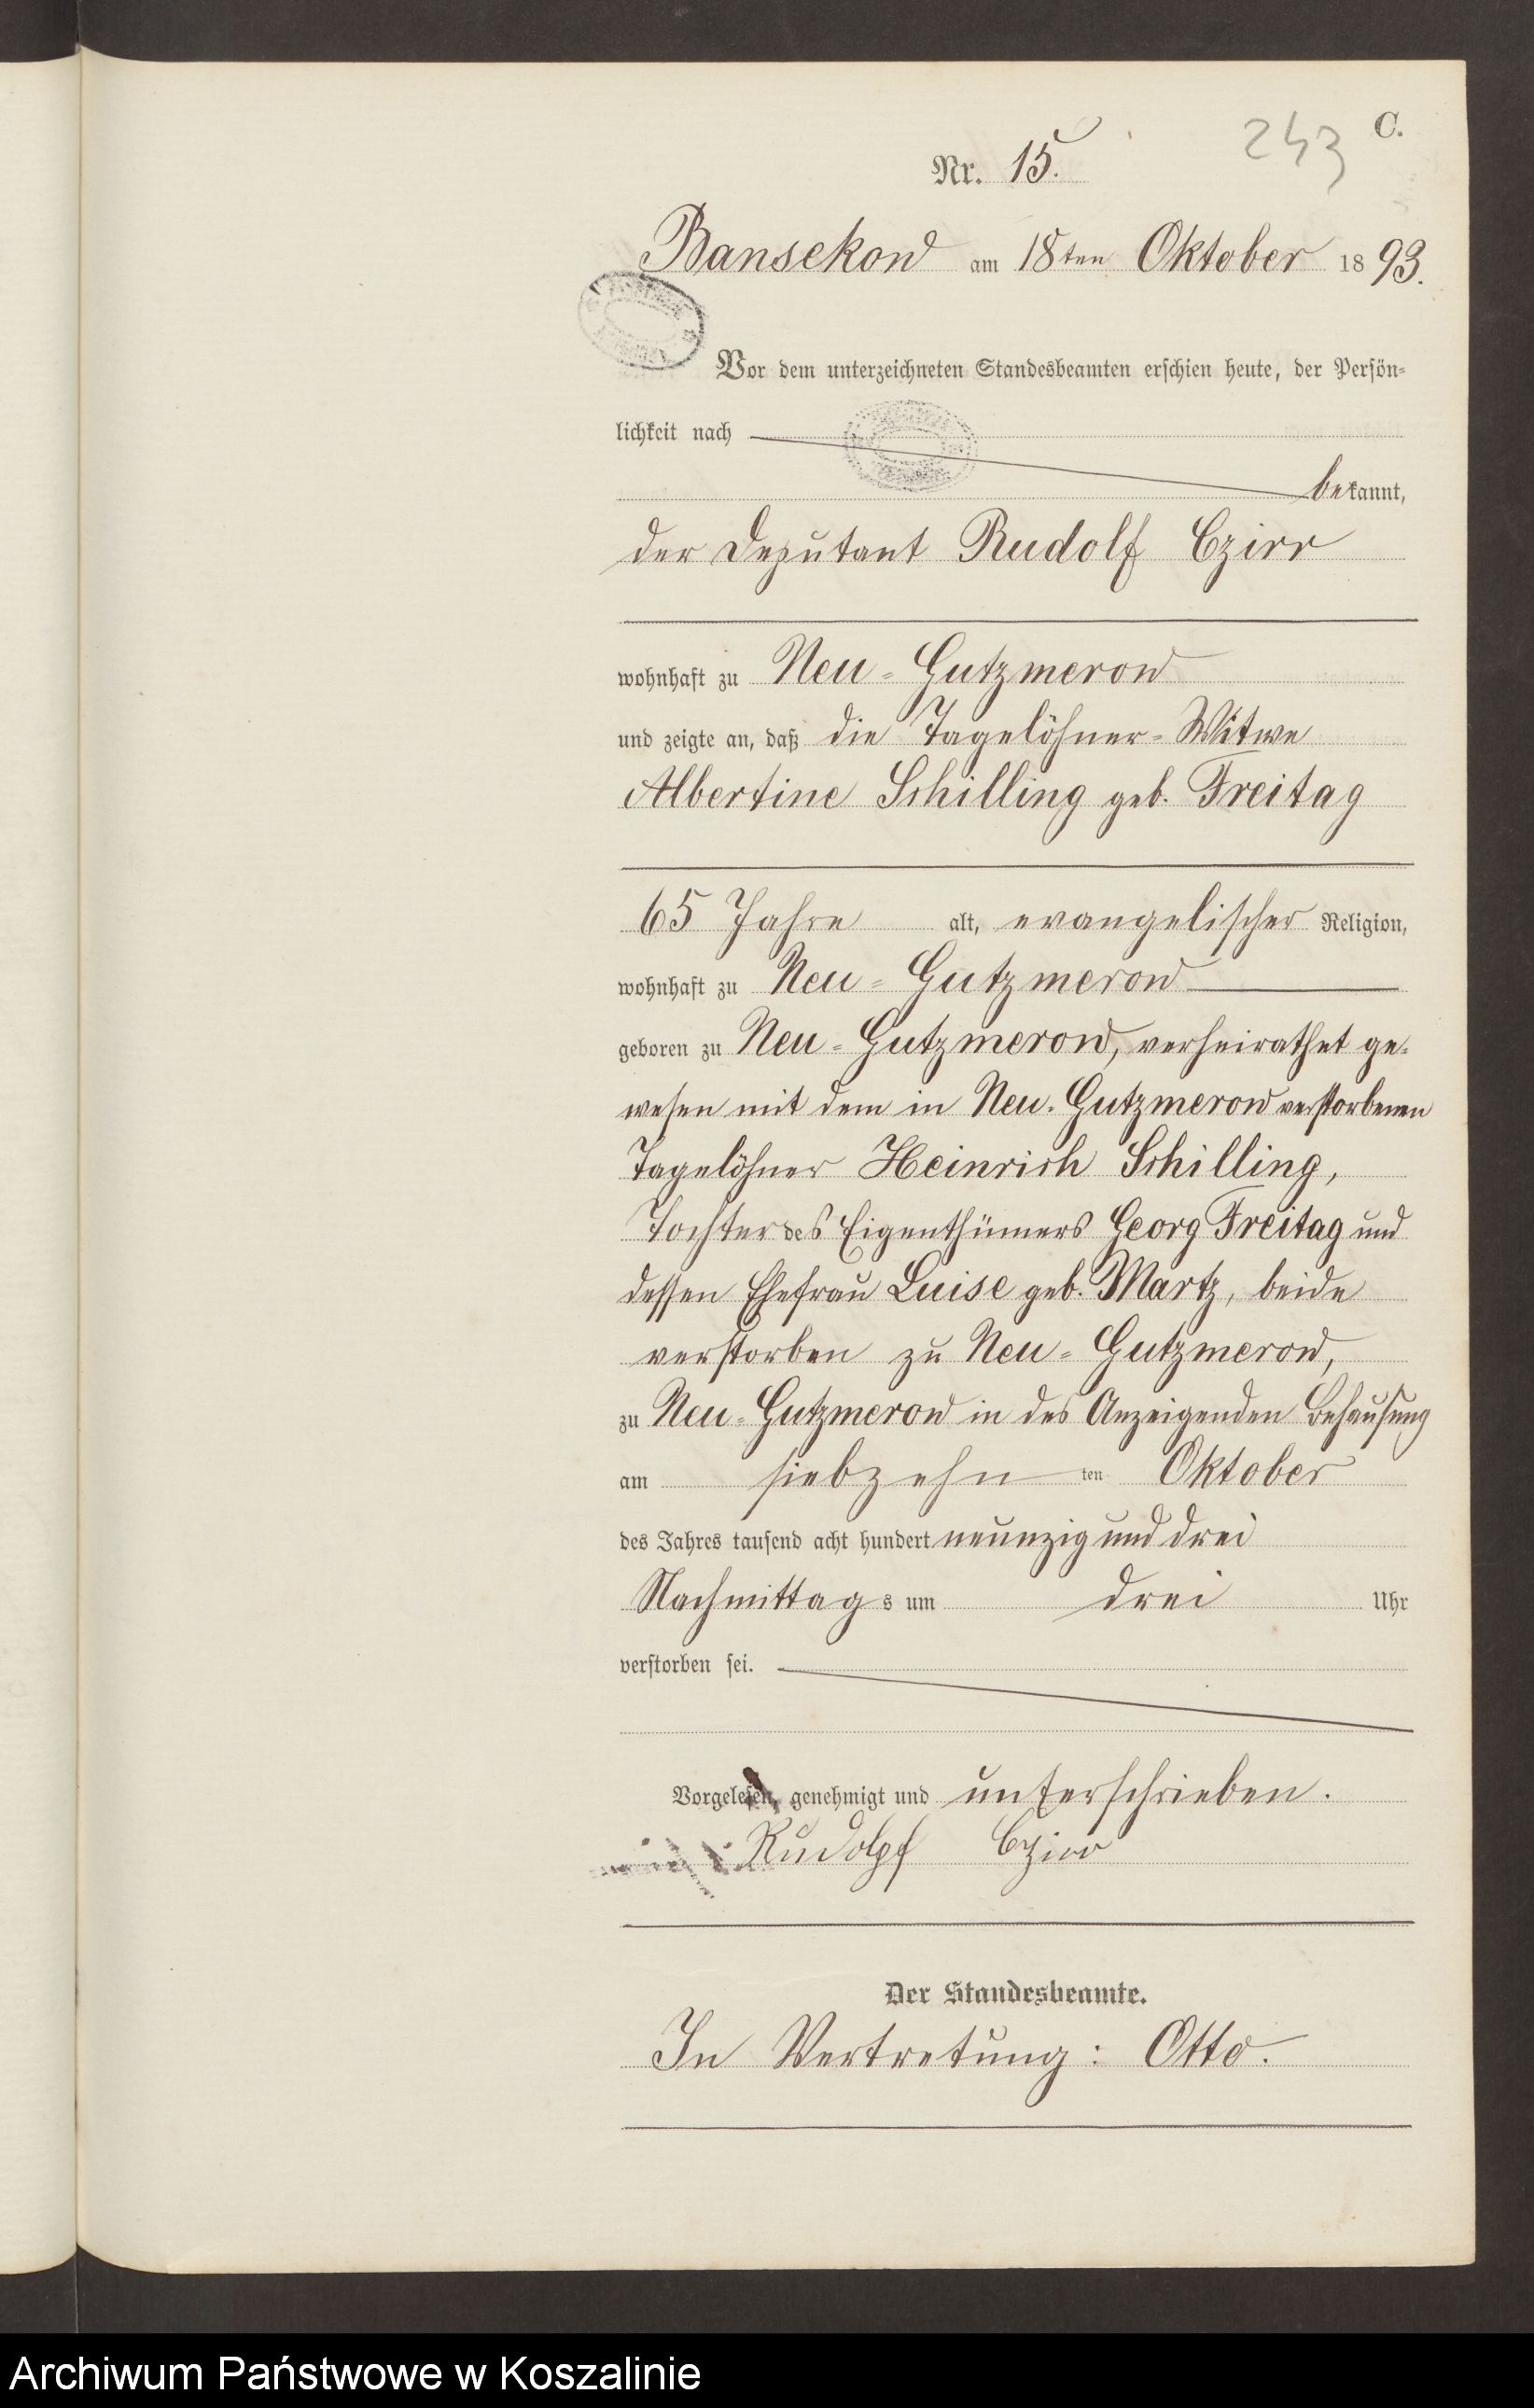 243 C.
Nr. 15.
Bansekow am 18ten Oktober 1893.
Vor dem unterzeichneten Standesbeamten erschien heute, der Persön-
lichkeit nach
bekannt,
der Deputant Rudolf Czirr
wohnhaft zu Neu-Gutzmerow
und zeigte an, daß die Tagelöhner-Witwe
Albertine Schilling geb. Freitag
65 Jahre alt, evangelischer Religion,
wohnhaft zu Neu-Gutzmerow
geboren zu Neu-Gutzmerow, verheirathet ge-
wesen mit dem in Neu-Gutzmerow verstorbenen
Tagelöhner Heinrich Schilling,
Tochter des Eigenthümers Georg Freitag und
dessen Ehefrau Luise geb. Martz, beide
verstorben zu Neu-Gutzmerow,
zu Neu-Gutzmerow in des Anzeigenden Behausung
am siebzehnten Oktober
des Jahres tausend acht hundert neunzig und drei
Nachmittags um drei Uhr
verstorben sei.
Vorgelesen, genehmigt und unterschrieben.
Rudolpf Czirr
Der Standesbeamte.
In Vertretung: Otto.
Archiwum Państwowe w Koszalinie